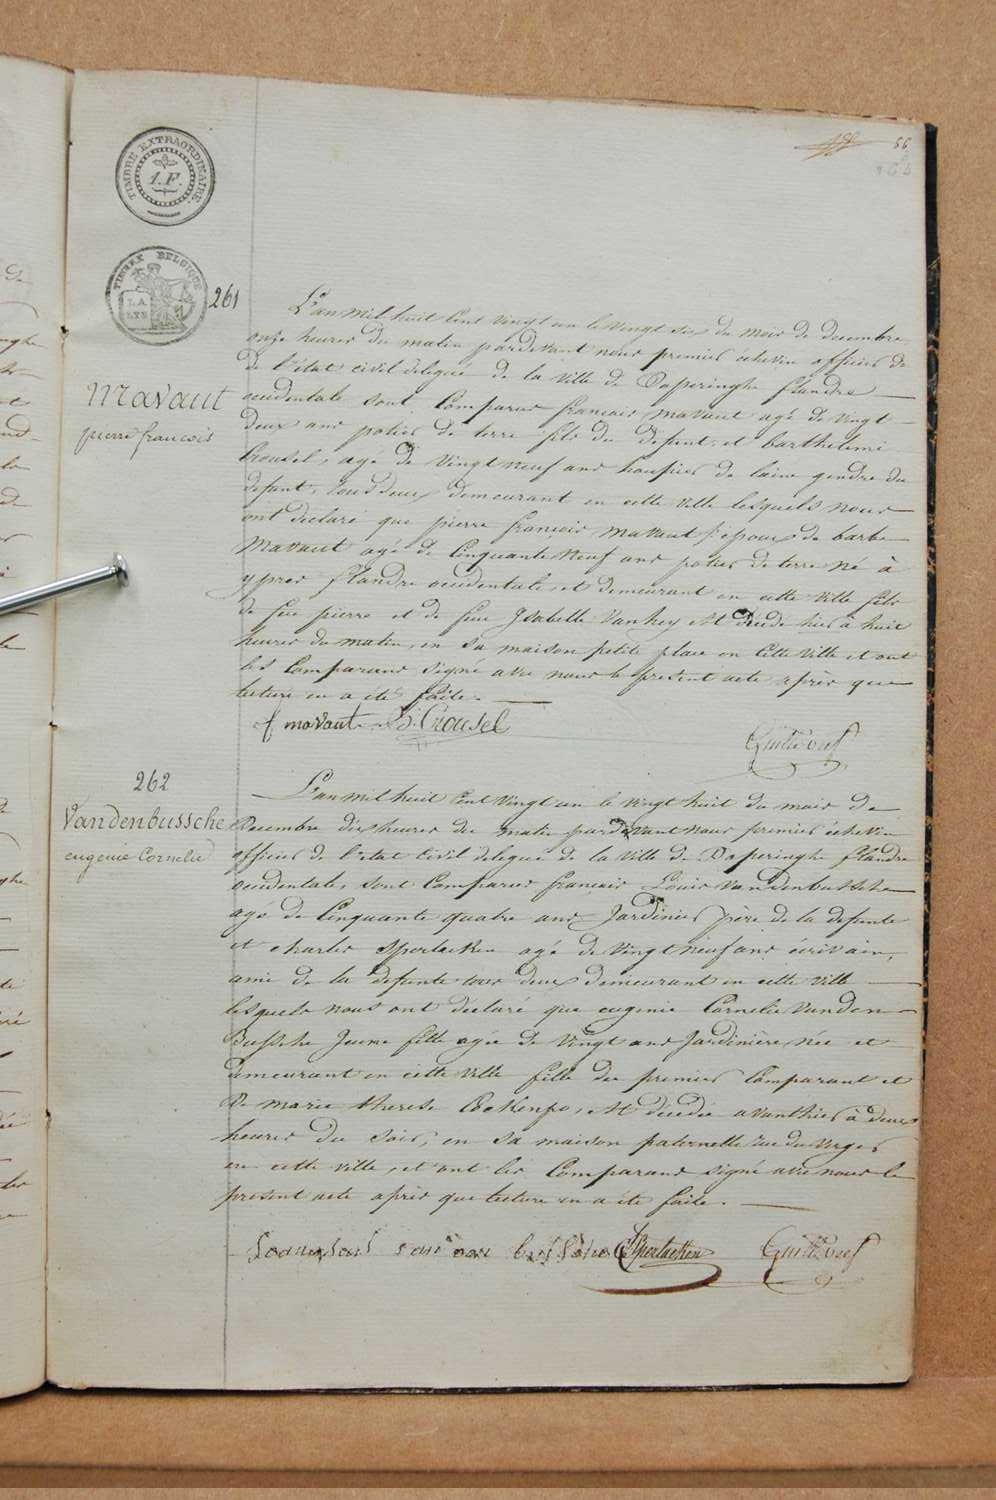 66
TIMBRE EXTRAORDINAIRE.
1.F.
TIMBRE BELGIQUE
LA
LYS
261
Mavaut
pierre francois
L'an mil huit Cent vingt un le vingt six du mois de decembre
onze heures du matin pardevant nous premier echevin officier de
de l'état civil delegué de la ville de Poperinghe flandre
occidentale sont Comparus francois mavaut agé de vingt
deux ans potier de terre fils du defunt, et barthelemi
Crousel, agé de vingt neuf ans houpier de laine gendre du
defunt, tous deux demeurant en cette ville lesquels nous
ont declaré que pierre francois mavaut epoux de barbe
Mavaut agé de Cinquante neuf ans potier de terre né à
ypres flandre occidentale, et demeurant en cette ville fils
de feu pierre et de feu Ysabelle Vanhey est décédé hier à huit
heures du matin, en sa maison petite place en Cette ville et ont
les Comparans signé avec nous le present acte après que
lecture en a été faite.
f mavaut B. Crousel
262
Vandenbussche
eugenie Cornelie
L'an mil huit Cent vingt un le vingt huit du mois de
Decembre dix heures du matin pardevant nous premier échevin
officier de l'etat Civil delegué de la ville de Poperinghe flandre
occidentale, sont Comparus francois Louis vandenbussche
agé de Cinquante quatre ans Jardinier père de la defunte
et charles Sperlacken agé de vingt neuf ans écrivain,
ami de la defunte tous deux demeurant en cette ville
lesquels nous ont déclaré que eugenie Cornelie vanden
Bussche Jeune fille agée de vingt ans Jardinière née et
demeurant en cette ville fille du premier Comparant et
de marie therese est décédée avanthier à deux
heures du soir, en sa maison paternelle rue du Verger
en cette ville, et ont les Comparans signé avec nous le
present acte après que lecture en a été faite.
CSperlacken